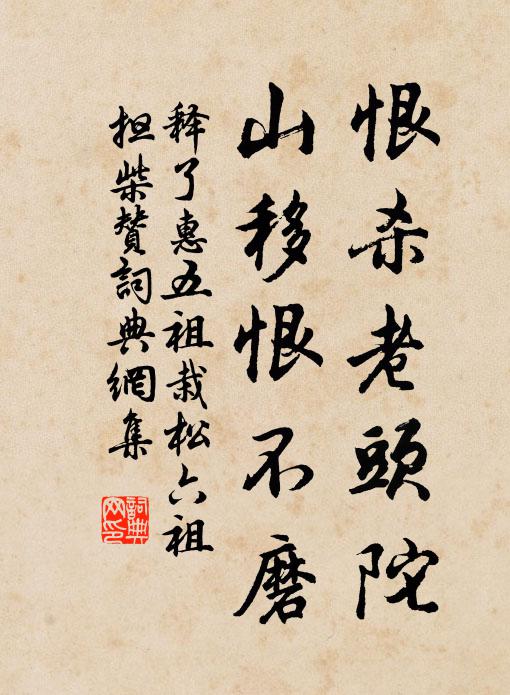 恨杀老頭陀
山移恨不磨
释了惠五祖栽松六祖
担柴賛詞典網集
詞典网印